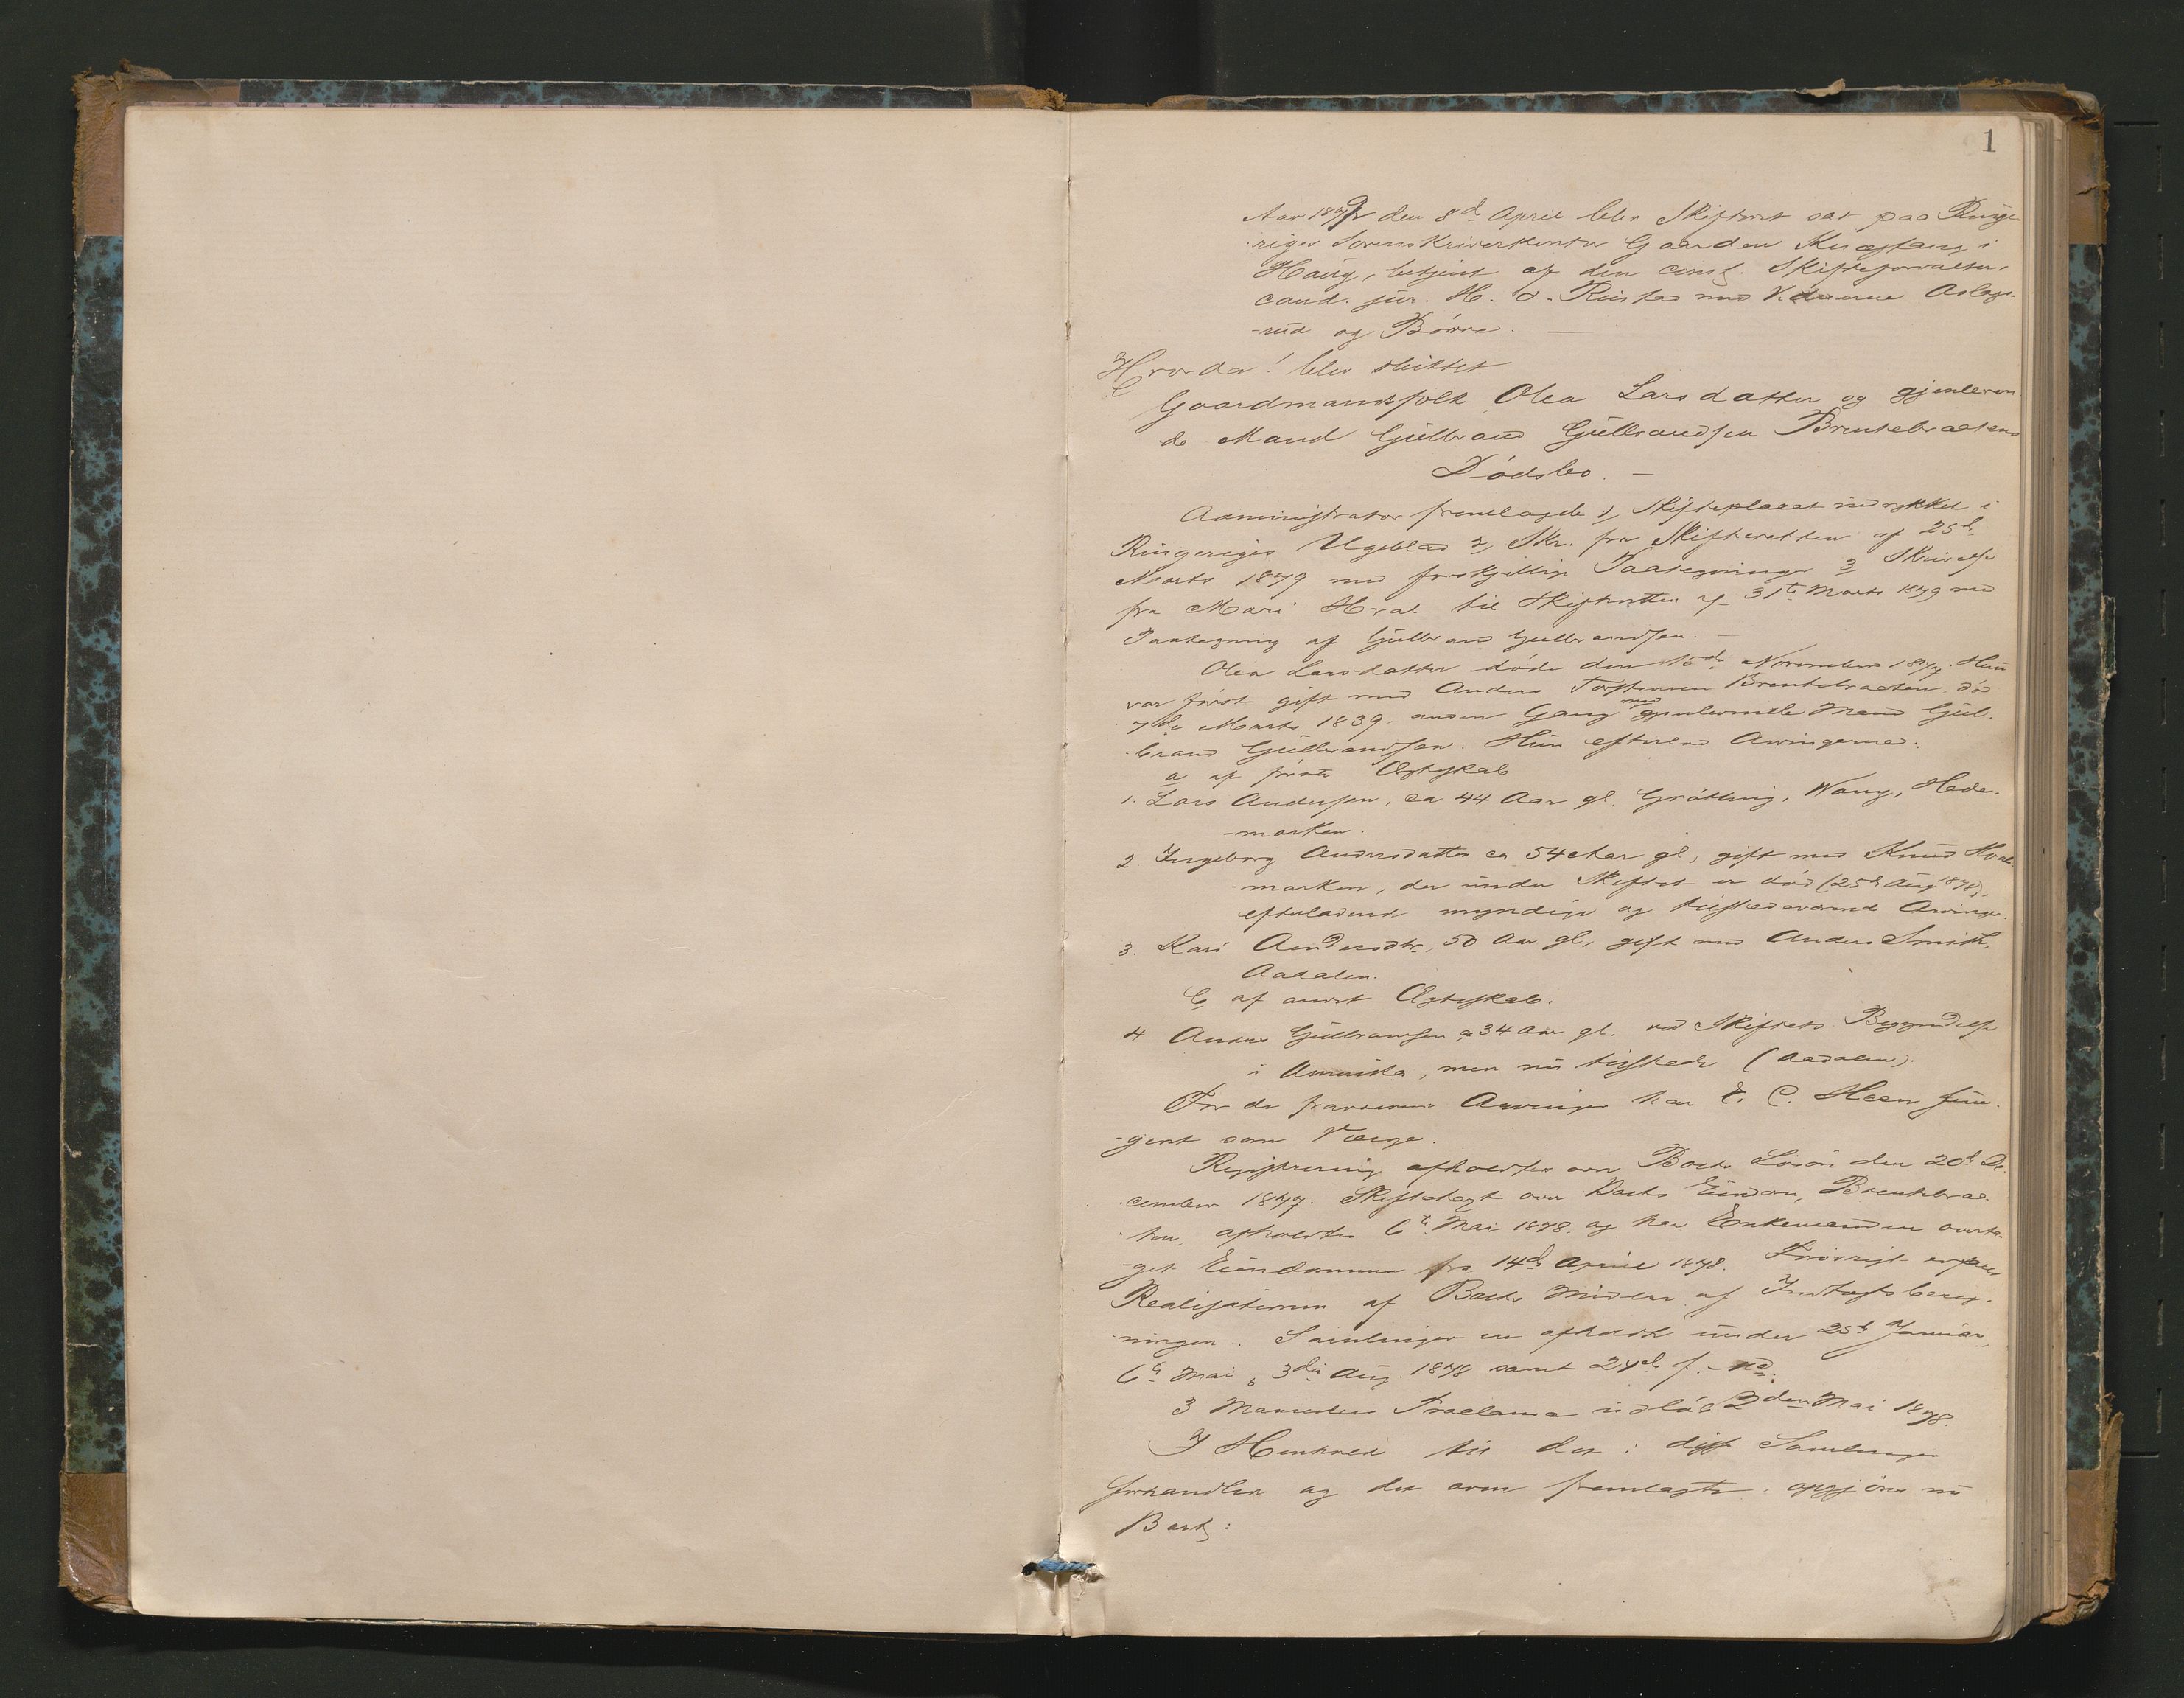 1
Aar 1879 den 8de April blev Skifteret sat paa Ringe-
riges Sorenskriverkontor Gaarden i
Haug, betjent af den const. Skifteforvalter,
cand. jur. H. O. Rustad med Vidnerne Aslags-
-rud og Börre. —
Hvorda! blev sluttet
Gaardmandsfolk Olea Larsdatter og gjenleven-
de Mand Gulbrand Gulbrandsen Brentebraatens
Dödsbo. —
Administrator fremlagde 1, Skifteplacat indrykket i
Ringeriges Ugeblad 2, Skr. fra Skifteretten af 25de
Marts 1879 med forskjellige Paategninger 3 Skrivelse
fra Mari Hval til Skifteretten af 31te Marts 1879 med
Paategning af Gulbrand Gulbrandsen. —
Olea Larsdatter döde den 15de November 1877. Hun
var först gift med Anders Torstensen Brentebraaten, död
7de Marts 1839, anden Gang med gjenlevende Mand Gul-
brand Gulbrandsen. Hun efterlod Arvingerne:
a af förste Ægteskab
1. Lars Andersen, ca 44 Aar gl. Gröttring, Wang, Hede-
-marken.
2. Ingeborg Andersdatter ca 54 Aar gl, gift med Knud Hval-
-marken, der under Skiftet er död (25de Aug 1878),
efterladende myndige og tilstedeværende Arvinger.
3. Kari Andersdtr, 50 Aar gl, gift med Anders Smith,
Aadalen.
b, af andet Ægteskab.
4 Anders Gulbrandsen ca 34 Aar gl. ved Skiftets Begyndelse
i Amerika, men nu tilstede (Aadalen).
For de fraværende Arvinger har E. C. Heen fun-
-gert som Værge.
Registrering afholdtes over Boets Lösöre den 20de De-
cember 1877. Skiftetagt over Boets Eiendom, Brentebraa-
ten, afholdtes 6te Mai 1878, og har Enkemanden overta-
-get Eiendommen fra 14de April 1878. Forövrigt erfares
Realisationen af Boets Midler af Indtægtsbereg-
-ningen. Samlinger er afholdt under 25de Januar,
6te Mai, 3die Aug. 1878 samt 24de f. M.
3 Maaneders Proclama udlöb 2den Mai 1878.
I Henhold til det i disse Samlinger
forhandlede og det oven fremlagte, opgjöres nu
Boet: